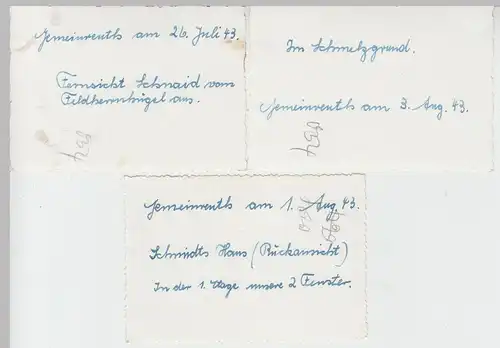 Gemeinreuth am 26. Juli 43.
Fernsicht Schnaid vom
Feldherrnhügel aus.
Im Schmelzgrund.
Gemeinreuth am 3. Aug. 43.
Gemeinreuth am 1. Aug. 43.
Schmidts Haus (Rückansicht)
In der 1. Etage unsere 2 Fenster.